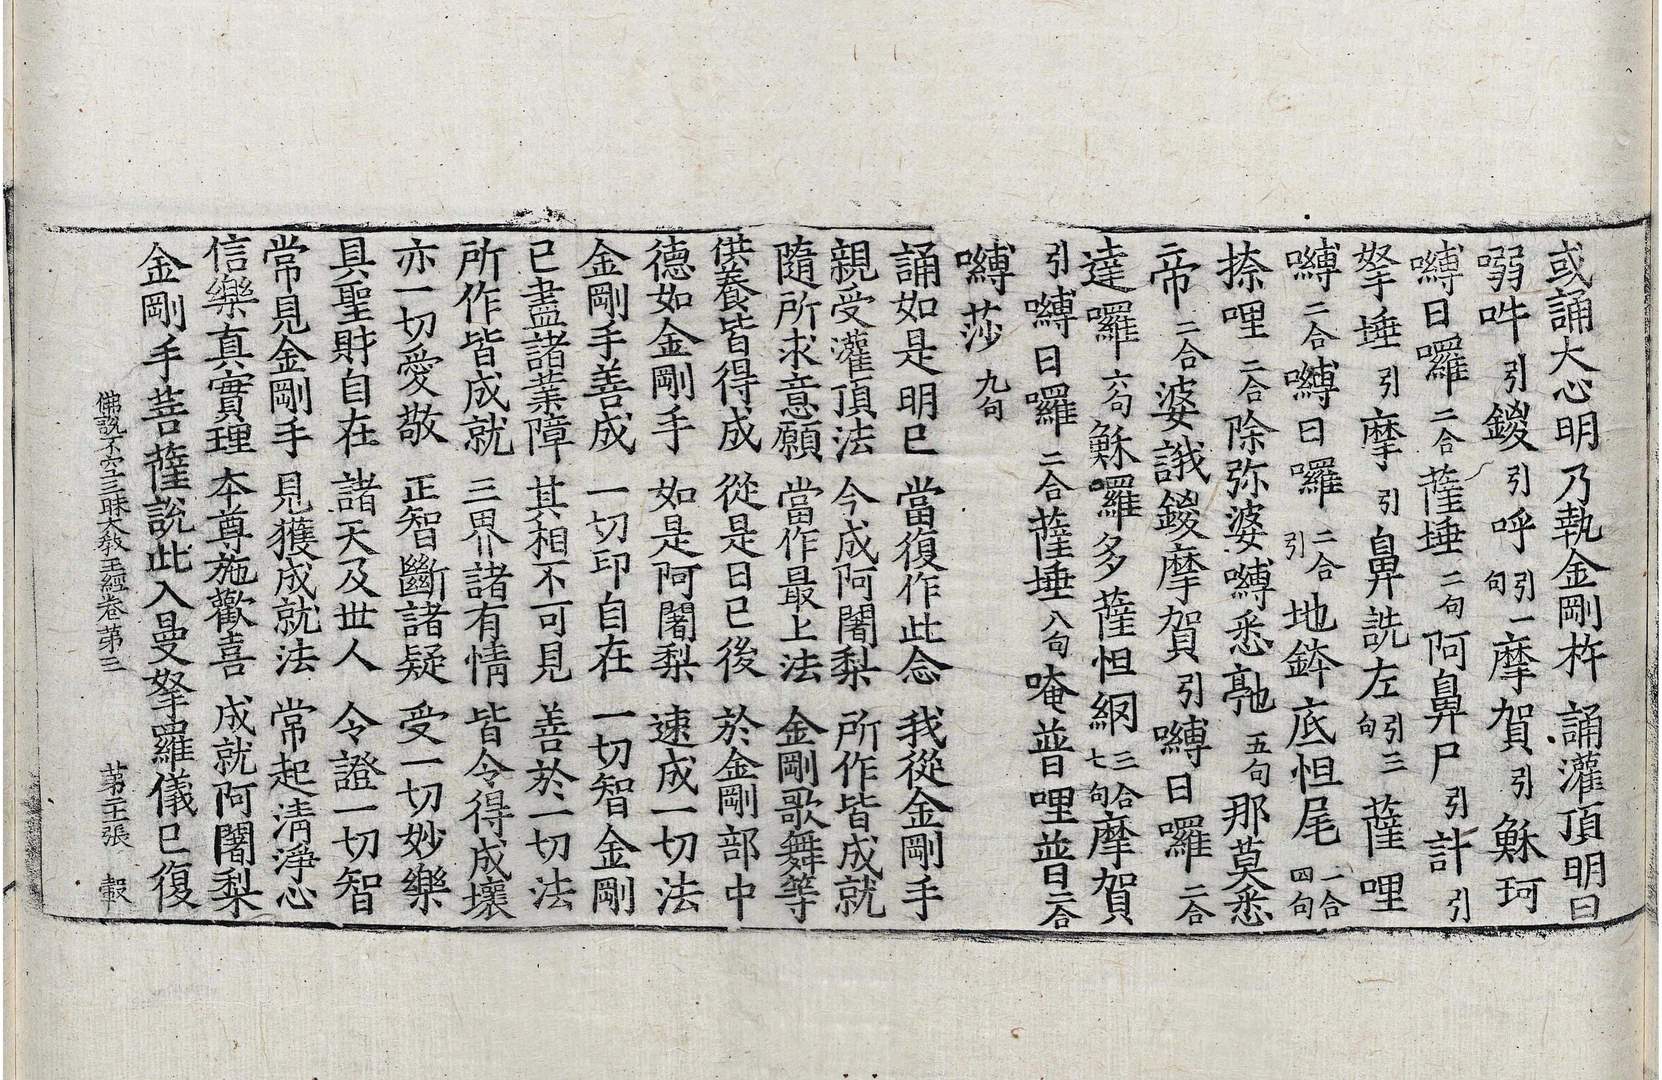 或誦大心明乃執金剛杵　誦灌頂明曰
㗚吽引鑁引呼引一句摩賀引穌珂
嚩日囉二合薩埵二句阿鼻尸引訐引
拏埵引摩引鼻詵左引三句薩哩
嚩二合嚩日囉二合引地鉢底怛尾二合四句
捺哩二合除弥婆嚩悉亟五句那莫悉
帝二合婆誐鑁摩賀引嚩日囉二合
達囉六句穌囉多薩怛網三合七句摩賀
引嚩日囉二合薩埵八句唵普哩普二合
嚩莎九句
誦如是明已　當復作此念　我從金剛手
親受灌頂法　今成阿闍梨　所作皆成就
隨所求意願　當作最上法　金剛歌舞等
供養皆得成　從是日已後　於金剛部中
德如金剛手　如是阿闍梨　速成一切法
金剛手善成　一切印自在　一切智金剛
已盡諸業障　其相不可見　善於一切法
所作皆成就　三界諸有情　皆令得成壞
亦一切愛敬　正智斷諸疑　受一切妙樂
具聖財自在　諸天及世人　令證一切智
常見金剛手　見獲成就法　常起清淨心
信樂真實理　本尊施歡喜　成就阿闍梨
金剛手菩薩說此入曼拏羅儀已復
佛說不空三昧大教王經卷第三　第二十張　轂